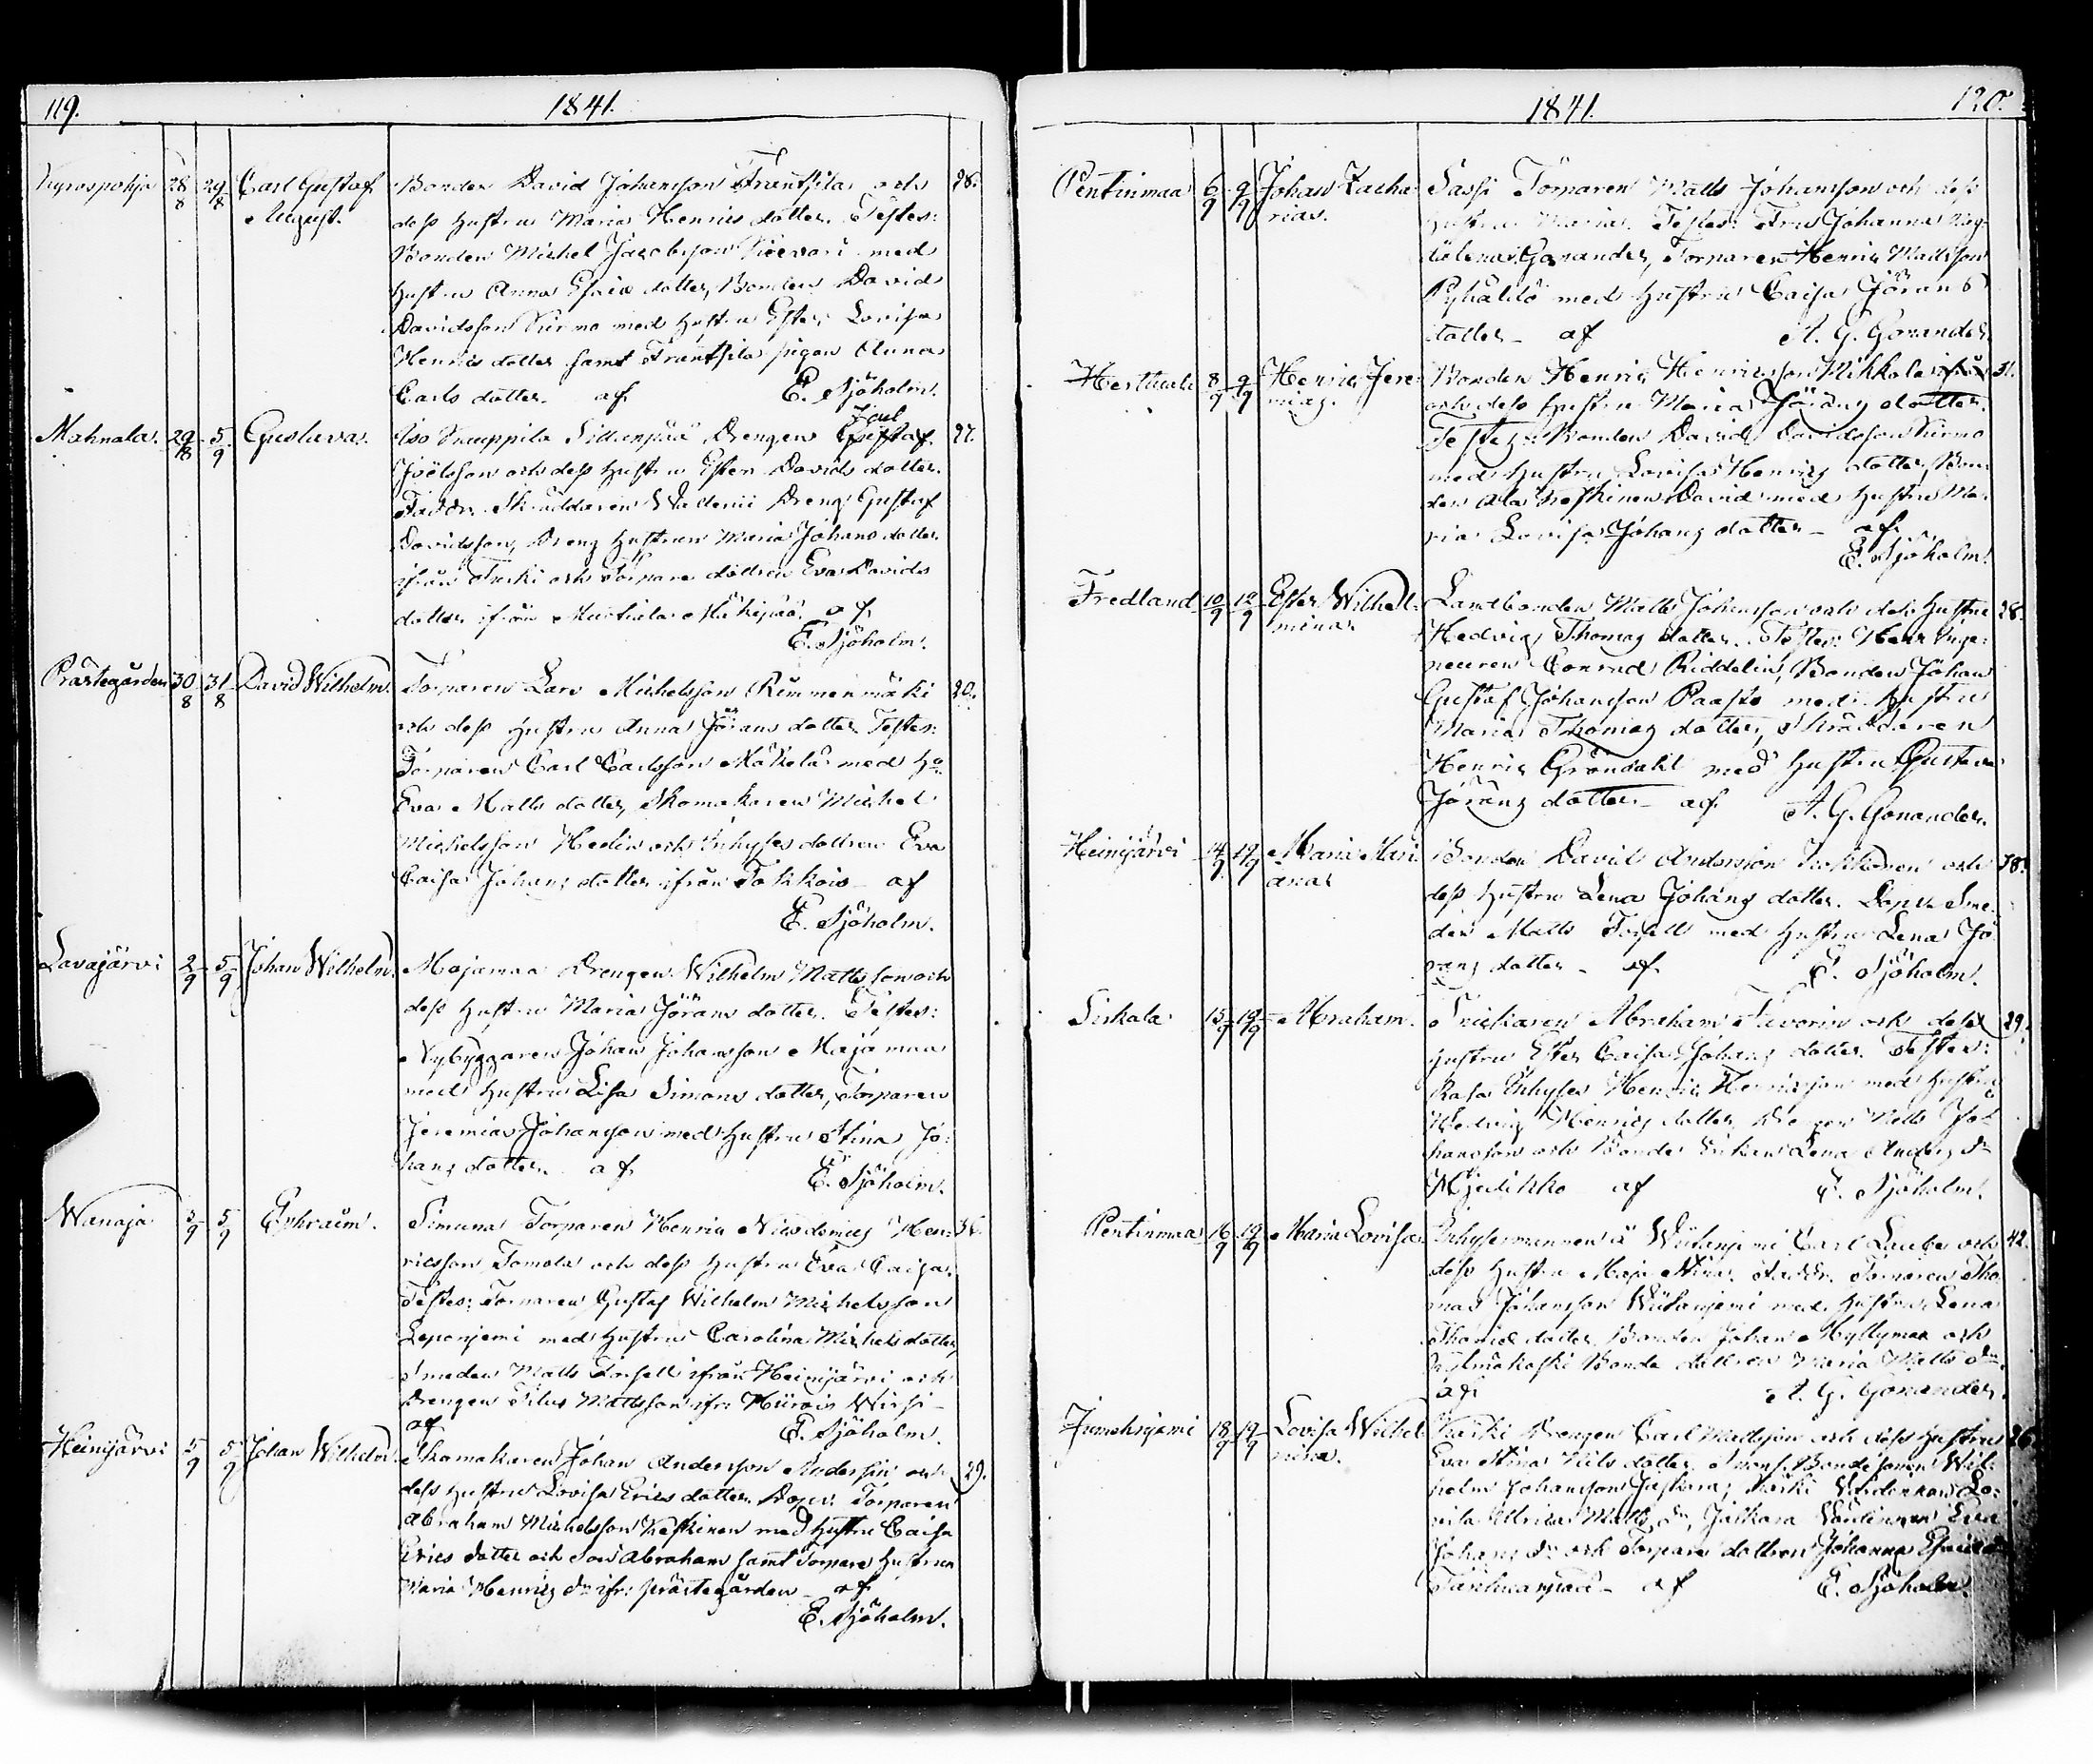 119. 1841.
Kyrospohja 28/8 29/8 Carl Gustaf Bonden David Johansson Frantsila och 28.
August. dess hustru Maria Henrics dotter. Testes:
Bonden Michel Jacobsson med
hustru Anna Esaia dotter, Bonden David
Davidsson Kurmo med hustru Ester Lovisa
Henrics dotter samt Frantsila pigan Anna
Carls dotter. af E. Sjöholm.
Mahnala. 29/8 5/9 Gustava. Iso Knuppila Sillanpää Drengen Joel Gustaf 27.
Joëlsson och dess hustru Ester Davids dotter.
Faddr. Skräddaren Wallenii Dreng Gustaf
Davidsson, Dreng hustrun Maria Johans dotter
ifrån Turki och Torpare dottren Eva Davids
dotter ifrån Mäkipää. af
E. Sjöholm.
Prästegården 30/8 31/8 David Wilhelm. Torparen Lars Michelsson Rimmenmäki 20.
och dess hustru Anna Jörans dotter. Testes:
Torparen Carl Carlsson Mäkelä med h:u
Eva Matts dotter, Skomakaren Michel
Michelsson Hedin och Inhyses dottren Eva
Caisa Johans dotter ifrån Tokkois af
E. Sjöholm.
Lavajärvi 2/9 5/9 Johan Wilhelm. Majamaa Drengen Wilhelm Mattsson och
dess hustru Maria Jörans dotter. Testes:
Nybyggaren Johan Johansson Majamaa
med hustru Lisa Simons dotter, Torparen
Jeremias Johansson med hustru Stina Jo-
hans dotter. af E. Sjöholm.
Wanaja 3/9 5/9 Ephraim. Simuna Torparen Henric Nicodemus Hen- 36.
ricsson Tomola och dess hustru Eva Caisa.
Testes: Torparen Gustaf Wilhelm Michelsson
Lepänjemi med hustru Carolina Michels dotter,
Smeden Matts Forsell ifrån Heinijärvi och
Drengen Filus Mattsson ifr:
af E. Sjöholm.
Heinijärvi 5/9 5/9 Johan Wilhelm. Skomakaren Johan Andersson Andersin och 29.
dess hustru Lovisa Erics dotter. Dopv: Torparen
Abraham Michelsson Keskinen med hustru Caisa
Erics dotter och Son Abraham samt Torpare hustrun
Maria Henrics d:r ifr: prästegården af
E. Sjöholm.
1841. 120.
Pentinmaa 6/9 9/9 Johan Zacha- Sassi Torparen Matts Johansson och dess
rias. hustru Maria. Testes: Fru Johanna Mag-
dalena Gonander, Torparen Henric Mattsson
Pyhältö med hustru Caisa Jörans
dotter af A. G. Gonander.
Herttuala 8/9 9/9 Henric Jere- Bonden Henric Henricsson Mikkola 31.
mias. och dess hustru Maria Jörans dotter.
Testes: Bonden David Davidsson Kurmo
med hustru Lovisa Henrics dotter, Bon-
den Ala Keskinen David med hustru Ma-
ria Lovisa Johans dotter af
E. Sjöholm.
Fredland 10/9 12/9 Ester Wilhel- Landbonden Matts Johansson och dess hustru 28.
mina Hedvig Thomas dotter. Testes: Herr Inge-
neuren Conrad Riddelin, Bonden Johan
Gustaf Johansson Paasko med hustru
Maria Thomas dotter, Skräddaren
Henric Gröndahl med hustru Gustava
Jörans dotter af A. G. Gonander.
Heinijärvi 14/9 19/9 Maria Mari- Bonden David Andersson och 38.
ana dess hustru Lena Johans dotter. Dopv. Sme-
den Matts Forsell med hustru Lena Jö-
rans dotter af E. Sjöholm.
Sirkala 15/9 19/9 Abraham. Snickaren Abraham Favorin och dess 29.
hustru Ester Caisa Johans dotter. Testes:
Rasa Inhyses Henric Henricsson med hustru
Hedvig Henrics dotter, Drengen Matts Jo-
hansson och Bonde Enkan Lena Anders d:r
af E. Sjöholm.
Pentinmaa 16/9 19/9 Maria Lovisa Inhysesmannen å Carl och 42.
dess hustru Maja Stina. Faddr. Torparen Tho-
mas Johansson med hustru Lena
dotter, Bonden Johan Myllymaa och
Kylmäkoski Bonde dottren Maria Matts d:r
af A. G. Gonander.
Jumehnjemi 18/9 19/9 Lovisa Wilhel- Drengen Carl Mattsson och dess hustru 26.
mina. Eva Stina Nils dotter. Bondesonen Wil-
helm Johansson Jaskara, Lo-
visa Ulrica Matts d:r, Jaskara
Johans d:r och Torpare dottren Johanna
af E. Sjöholm.